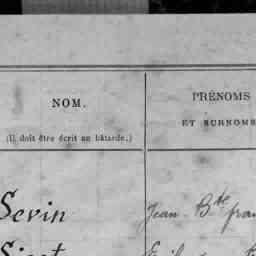 NOM.
(Il doit être écrit en bâtarde.)
PRÉNOMS
ET SURNOMS
Sevin
Jean Bte fran